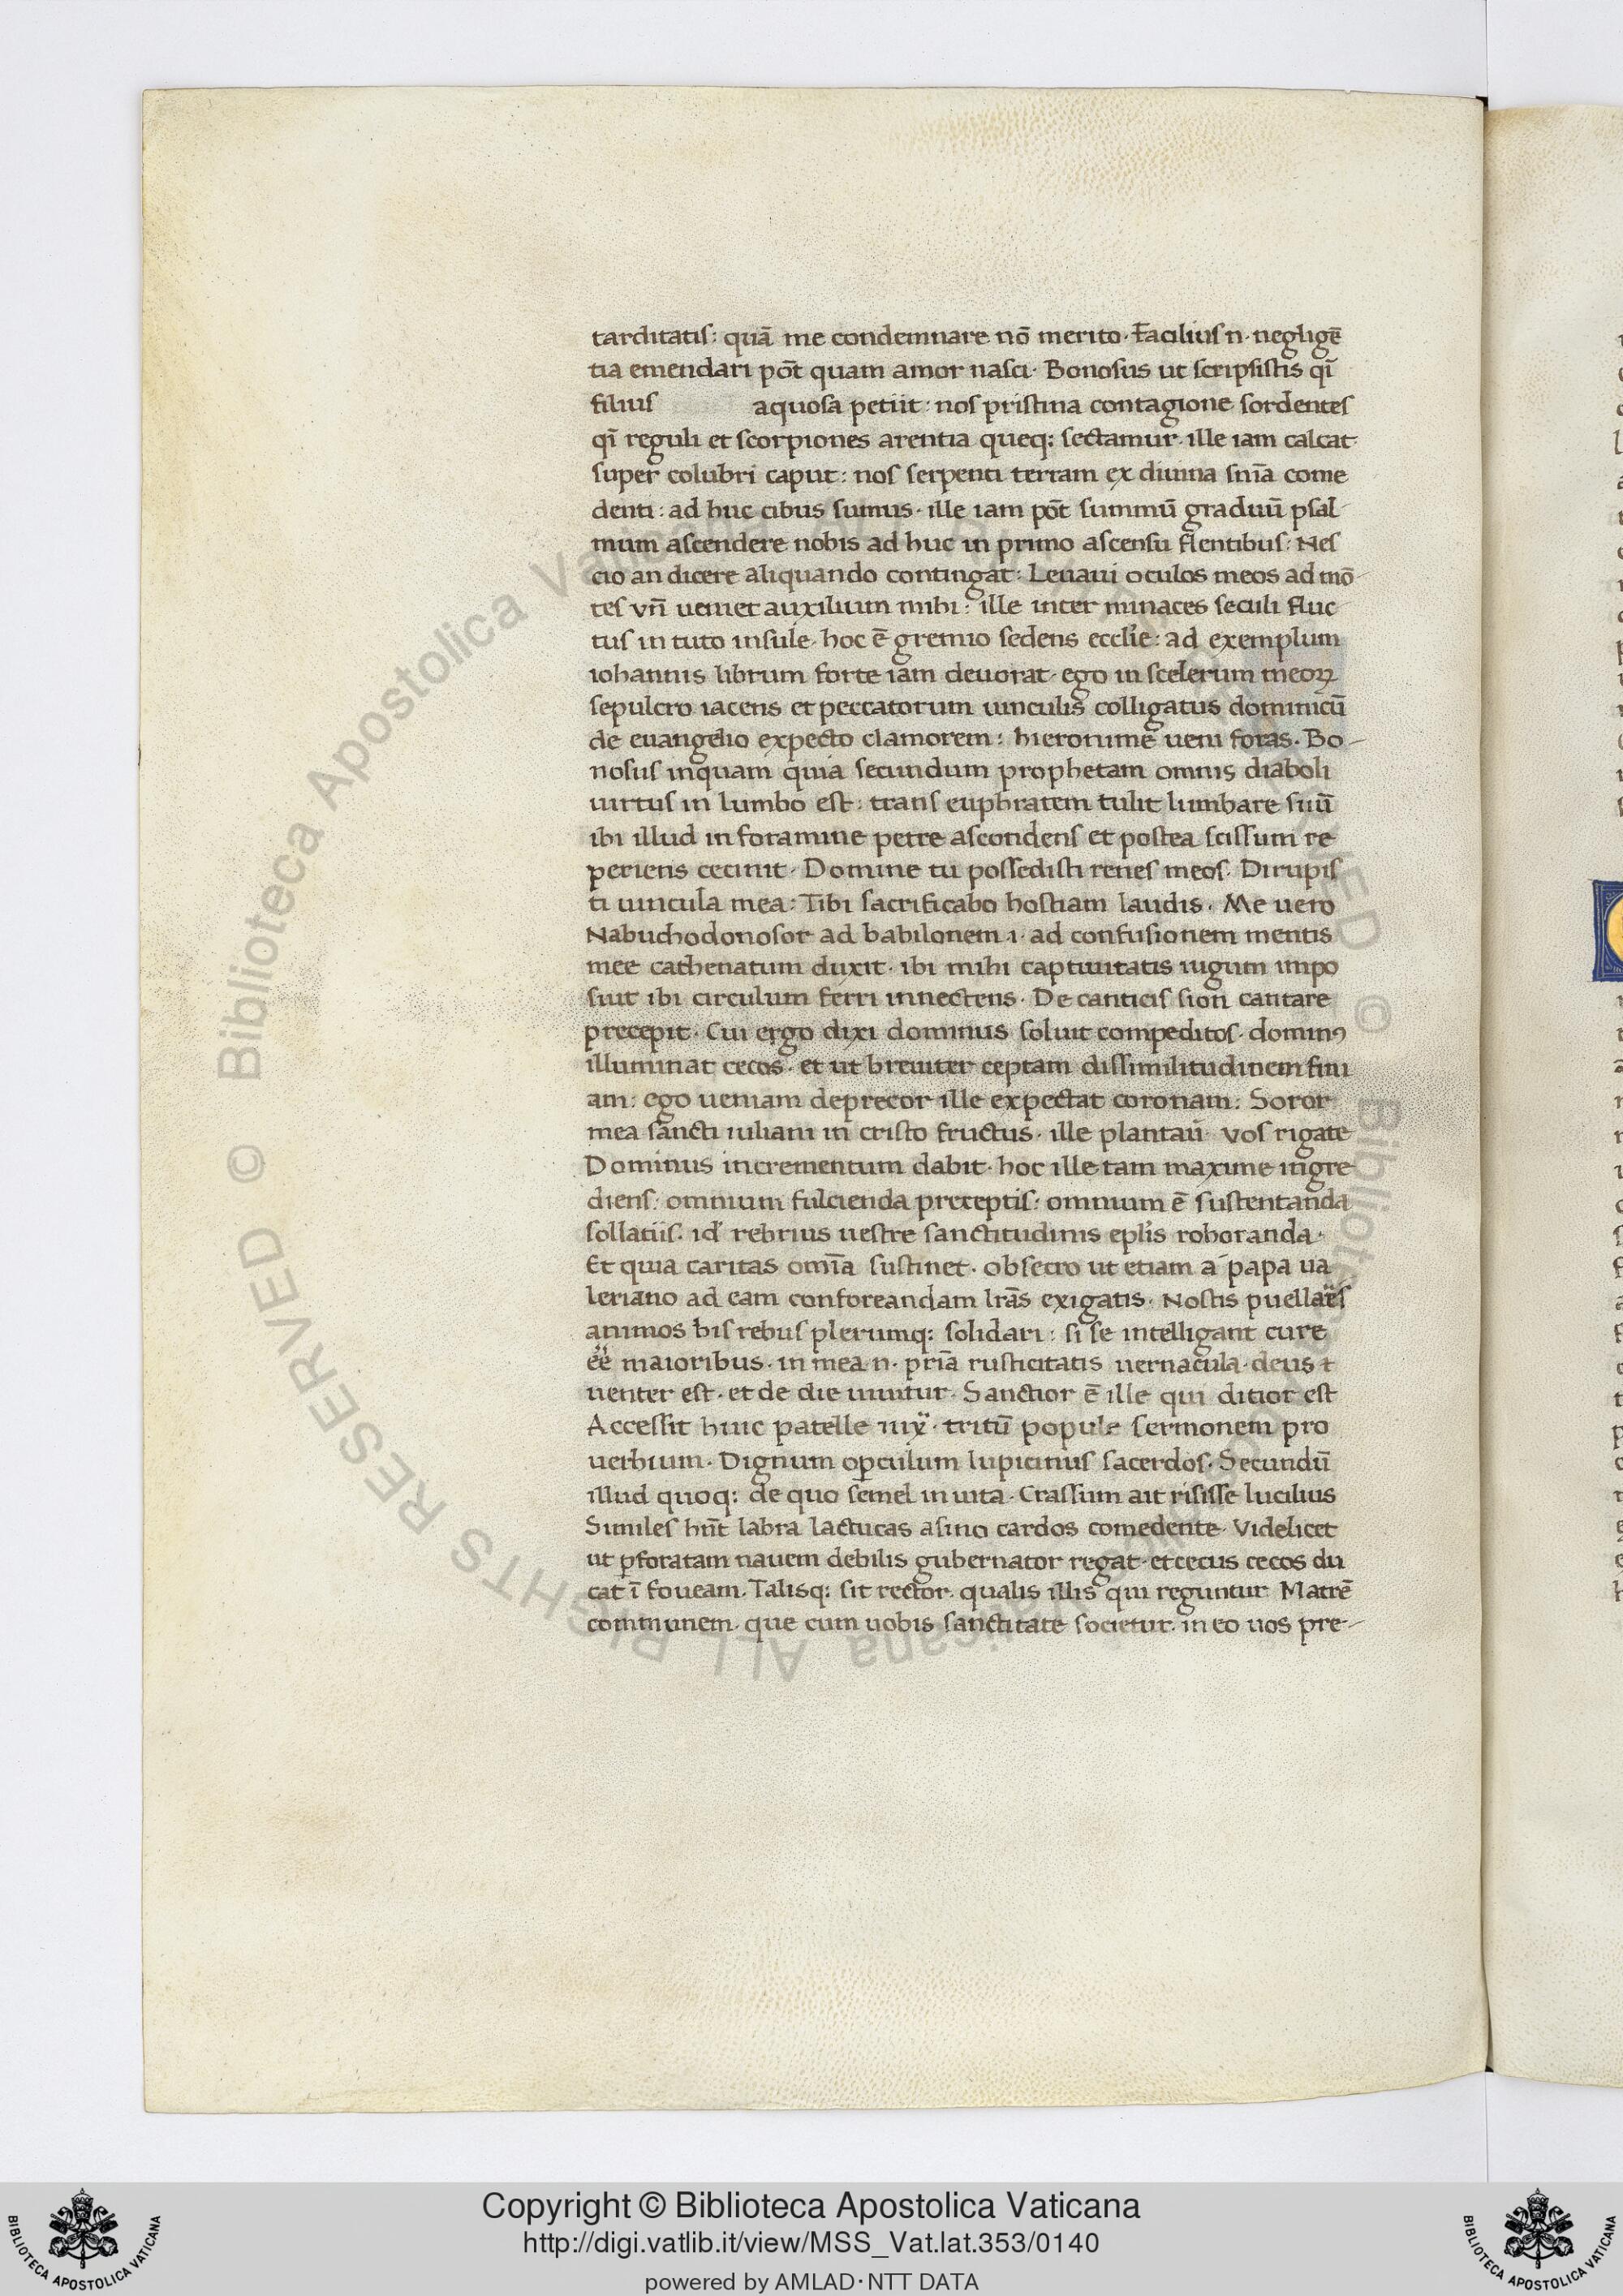 tarditatis: quā me condemnare nō merito. Facilius n. negligē
tia emendari pōt quam amor nasci. Bonosus ut scripsistis qī
filius aquosa petiit: nos pristina contagione sordentes
qī reguli et scorpiones arentia queq: sectamur. ille iam calcat
super colubri caput: nos serpenti terram ex diuina snīa come
denti: ad huc cibus sumus. ille iam pōt summū graduū psal
mum ascendere nobis ad huc in primo ascensu flentibus: Nes
cio an dicere aliquando contingat: Leuaui oculos meos ad mō
tes vn̄ ueniet auxilium mihi: ille inter minaces seculi fluc
tus in tuto insule. hoc ē gremio sedens eccl'ie: ad exemplum
iohannis librum forte iam deuorat. ego in scelerum meoꝝ
sepulcro iacens et peccatorum uinculis colligatus dominicū
de euangelio expecto clamorem: hieronime ueni foras. Bo-
nosus inquam quia secundum prophetam omnis diaboli
uirtus in lumbo est: trans euphratem tulit lumbare suū
ibi illud in foramine petre ascondens et postea scissum re
periens cecinit. Domine tu possedisti renes meos. Dirupis
ti uincula mea: Tibi sacrificabo hostiam laudis. Me uero
Nabuchodonosor ad babilonem .i. ad confusionem mentis
mee cathenatum duxit. ibi mihi captiuitatis iugum impo
suit ibi circulum ferri innectens. De canticis sion cantare
precepit. Cui ergo dixi dominus soluit compeditos. dominꝯ
illuminat cecos. et ut breuiter ceptam dissimilitudinem fini
am: ego ueniam deprecor ille expectat coronam: Soror
mea sancti iuliani in cristo fructus. ille plantau' vos rigate
Dominus incrementum dabit. hoc ille tam maxime ingre
diens: omnium fulcienda preceptis: omnium ē sustentanda
sollatiis. id' rebrius uestre sanctitudinis epl'is roboranda.
Et quia caritas om̄ia sustinet. obsecro ut etiam a papa ua
leriano ad eam conforeandam lrās exigatis. Nostis puellaꝵs
animos his rebus plerumq: solidari: si se intelligant cure
eē maioribus. in mea n. pria rusticitatis uernacula. deus ⁊
uenter est. et de die uiuitur. Sanctior ē ille qui ditior est
Accessit huic patelle iuxᷓ. tritū popule sermonem pro
uerbium. Dignum oꝑculum lupicinus sacerdos. Secundū
illud quoq: de quo semel in uita. Crassum ait risisse lucilius
Similes hn̄t labra lactucas asino cardos comedente. Videlicet
ut ꝑforatam nauem debilis gubernator regat. et cecus cecos du
cat ī foueam. Talisq: sit rector. qualis illis qui reguntur Matrē
communem. que cum uobis sanctitate societur. in eo uos pre-
Copyright © Biblioteca Apostolica Vaticana
http://digi.vatlib.it/view/MSS_Vat.lat.353/0140
powered by AMLAD·NTT DATA